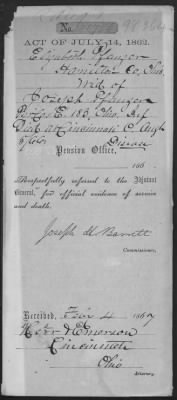 ACT OF JULY 14, 1862.
Elizabeth Pfanger
Hamilton Co, Ohio
Wid of
Joseph Pfanger
183, Ohio
Died at Cincinnati O
Disease
Pension Office,
186 .
Respectfully referred to the Adjutant
General, for official evidence of service
and death.
Joseph H Barrett
Commissioner.
Received, Feb'y 4 1867
Emerson
Cincinnati
Ohio
Attorney.